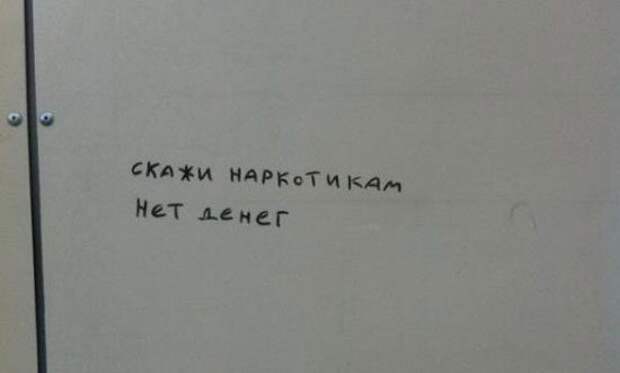 СКАЖИ НАРКОТИКАМ
НЕТ ДЕНЕГ